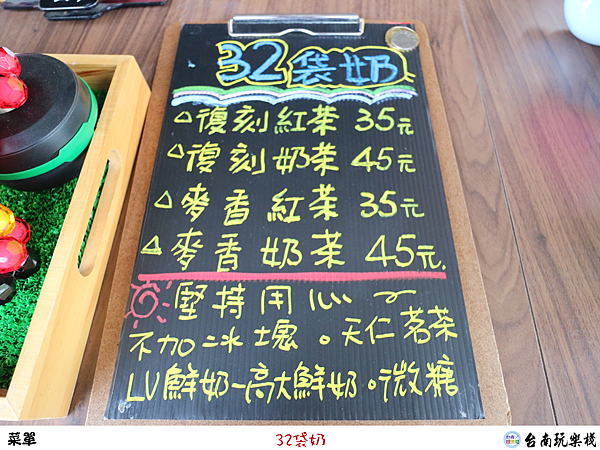 32袋奶
△復刻紅茶 35元
△復刻奶茶 45元
△麥香紅茶 35元
△麥香奶茶 45元.
堅持用心～
不加冰塊。天仁茗茶
LV鮮奶-高大鮮奶。微糖
菜單
32袋奶
台南玩樂棧